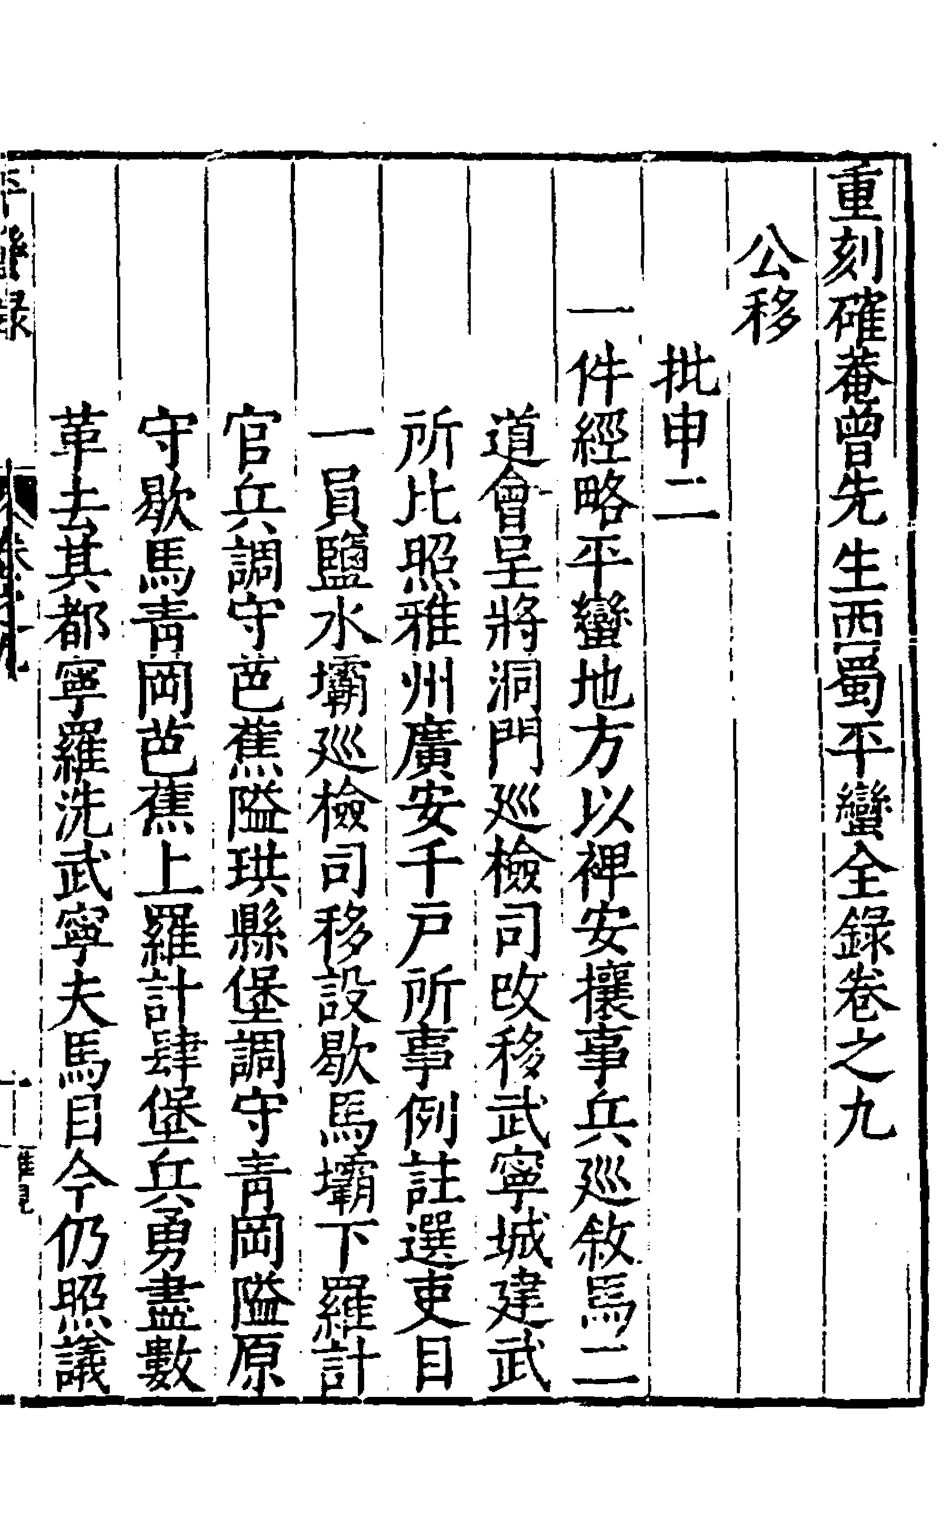 重刻確菴曾先生西蜀平蠻全錄卷之九
公移
批申二
一件經略平蠻地方以裨安攘事兵廵敘馬二
道會呈將洞門廵檢司改移武寧城建武
所比照雅州廣安千戶所事例註選吏目
一員鹽水壩廵檢司移設歇馬壩下羅計
官兵調守芭蕉隘珙縣堡調守青岡隘原
守歇馬青岡芭蕉上羅計肆堡兵勇盡數
革去其都寧羅洗武寧夫馬目今仍照議